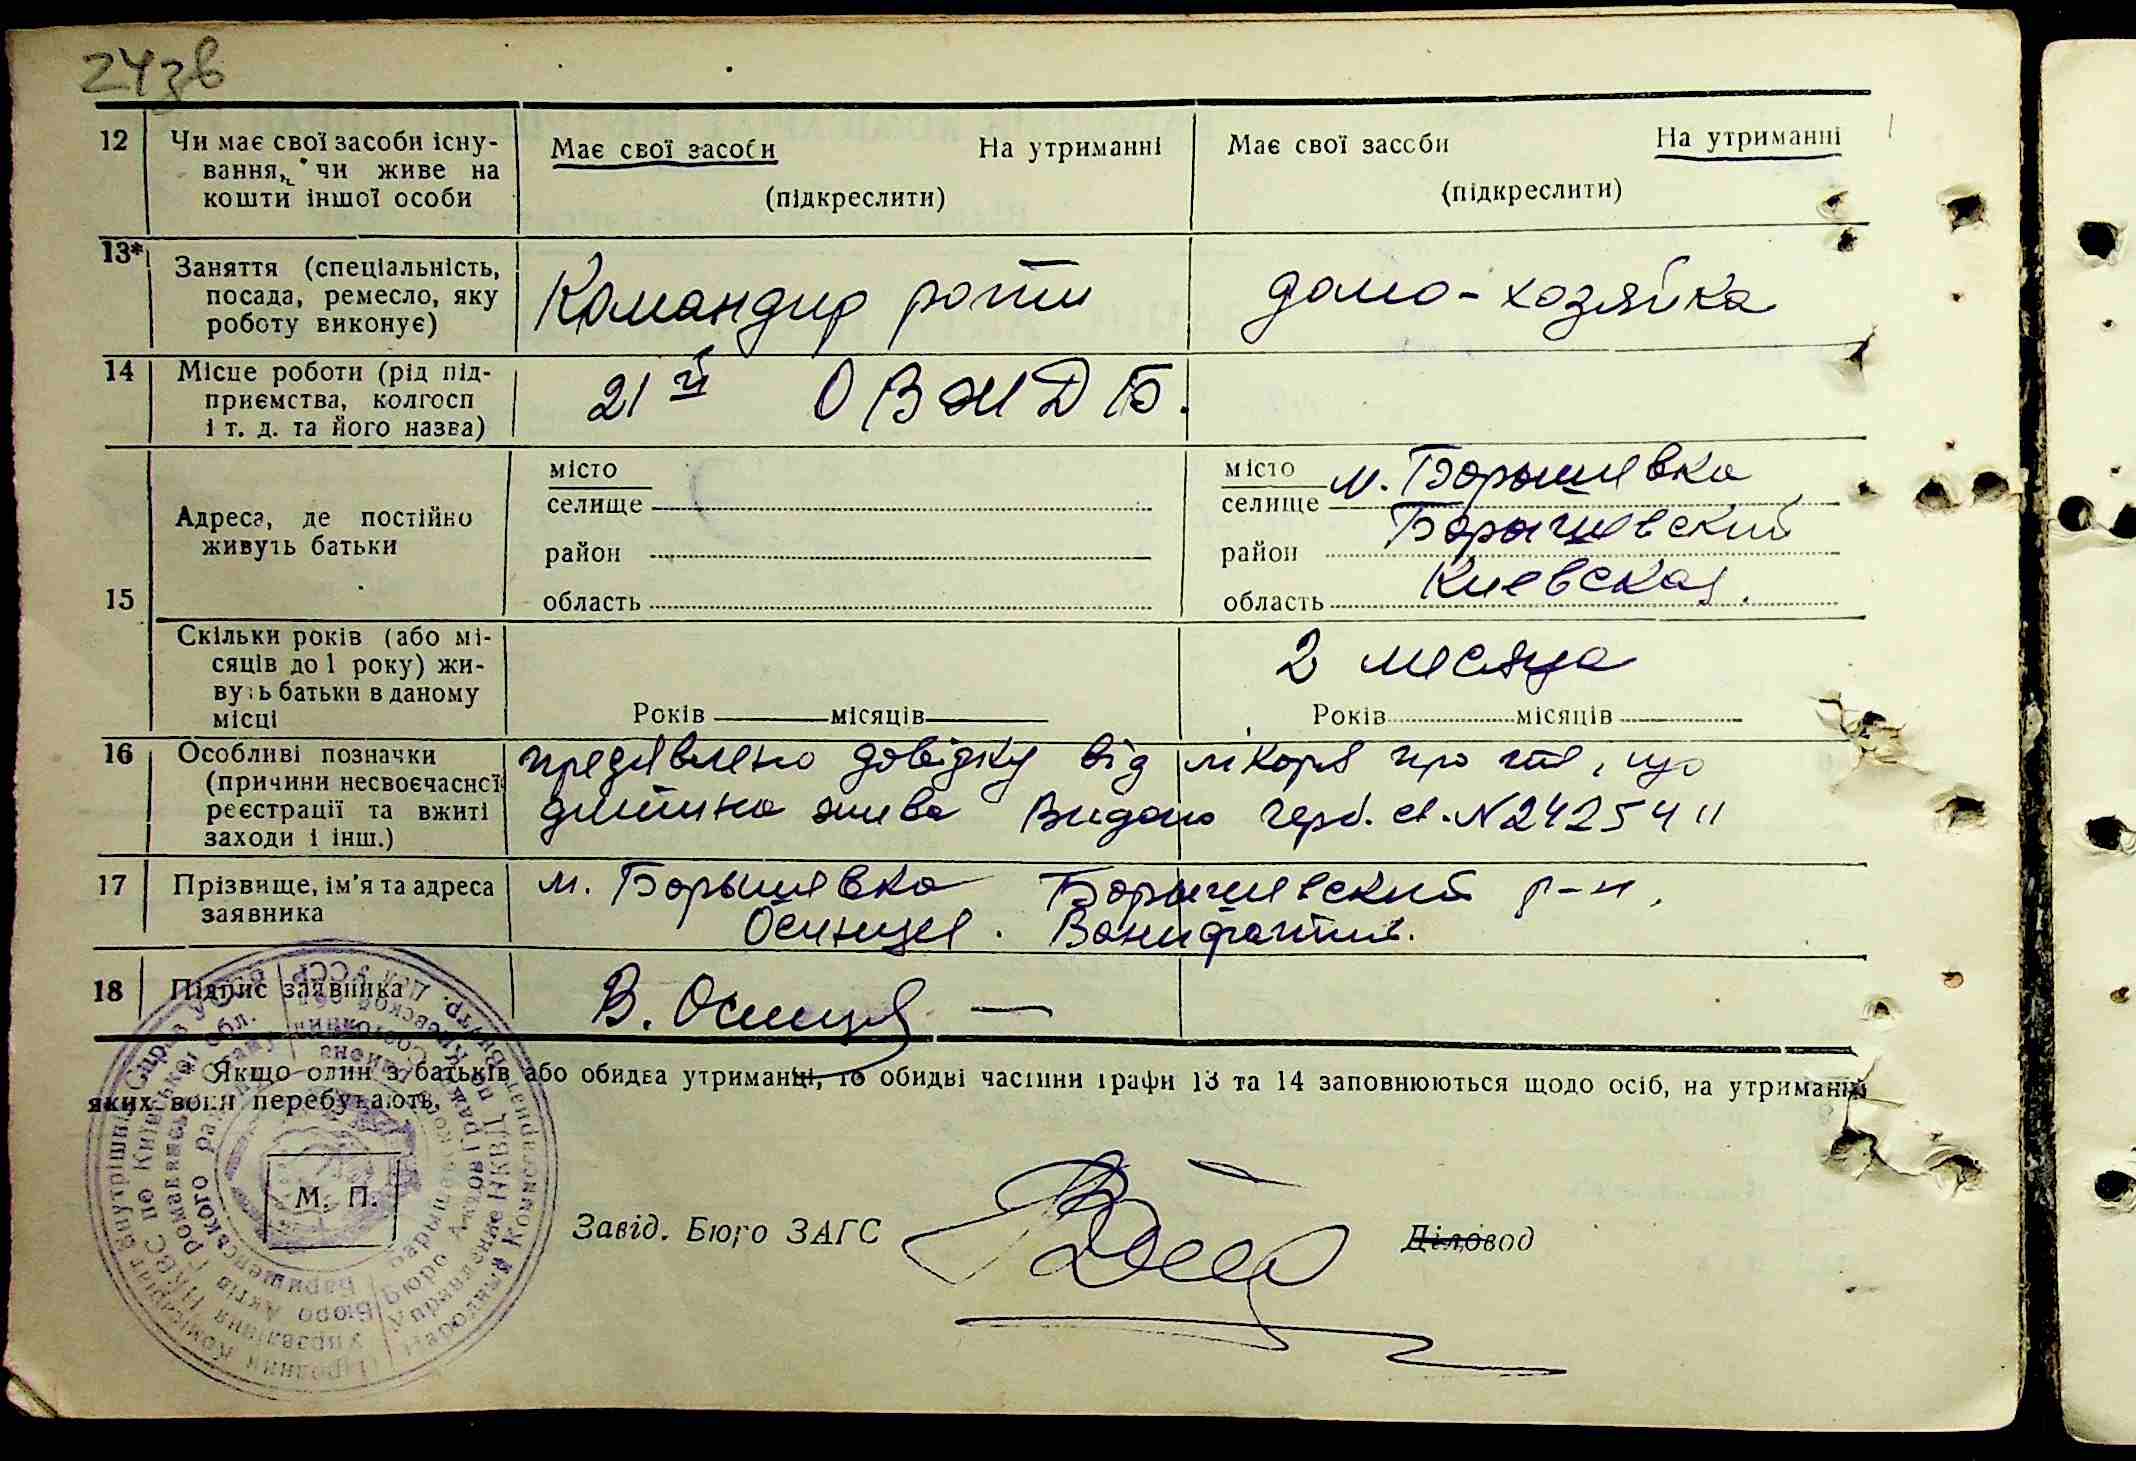 24зв
12 Чи має свої засоби існу-
вання, чи живе на
кошти іншої особи
Має свої засоби На утриманні
(підкреслити)
Має свої зассби На утриманні
(підкреслити)
13* Заняття (спеціальність,
посада, ремесло, яку
роботу виконує)
Командир роти
домо-хозяйка
14 Місце роботи (рід під-
приємства, колгосп
і т. д. та його назва)
21й ОВЖДБ.
15
Адреса, де постійно
живуть батьки
місто
селище
район
область
місто
селище м. Борышевка
район Борышевский
область Киевская.
Скільки років (або мі-
сяців до 1 року) жи-
вуть батьки в даному
місці
Років місяців
2 месяца
Років місяців
16 Особливі позначки
(причини несвоєчасної
реєстрації та вжиті
заходи і інш.)
предявлено довідку від лікоря про те, що
дитина жива Видано герб. св. N 2425411
17 Прізвище, ім'я та адреса
заявника
м. Борышевка Борышевский р-н,
Осинцев.
18 Підпис заявника
В. Осинцев
* Якщо один з батьків або обидва утриманці, то обидві частини графи 13 та 14 заповнюються щодо осіб, на утриманні
яких вони перебувають.
М. П.
Завід. Бюро ЗАГС
Діловод